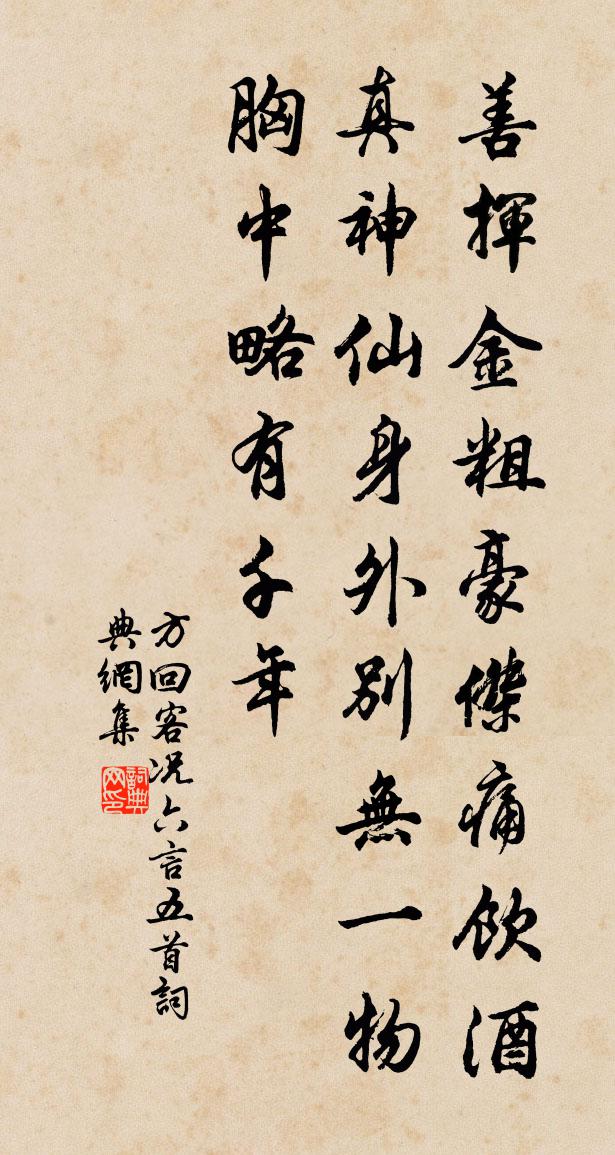 善揮金粗豪傑痛飲酒
真神仙身外別無一物
胸中略有千年
方回客况六言五首詞
典網集
詞典网印